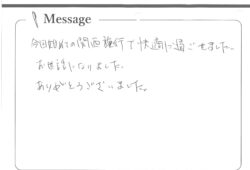 Message
今回初めての関西旅行で快適に過ごせました。
お世話になりました。
ありがとうございました。